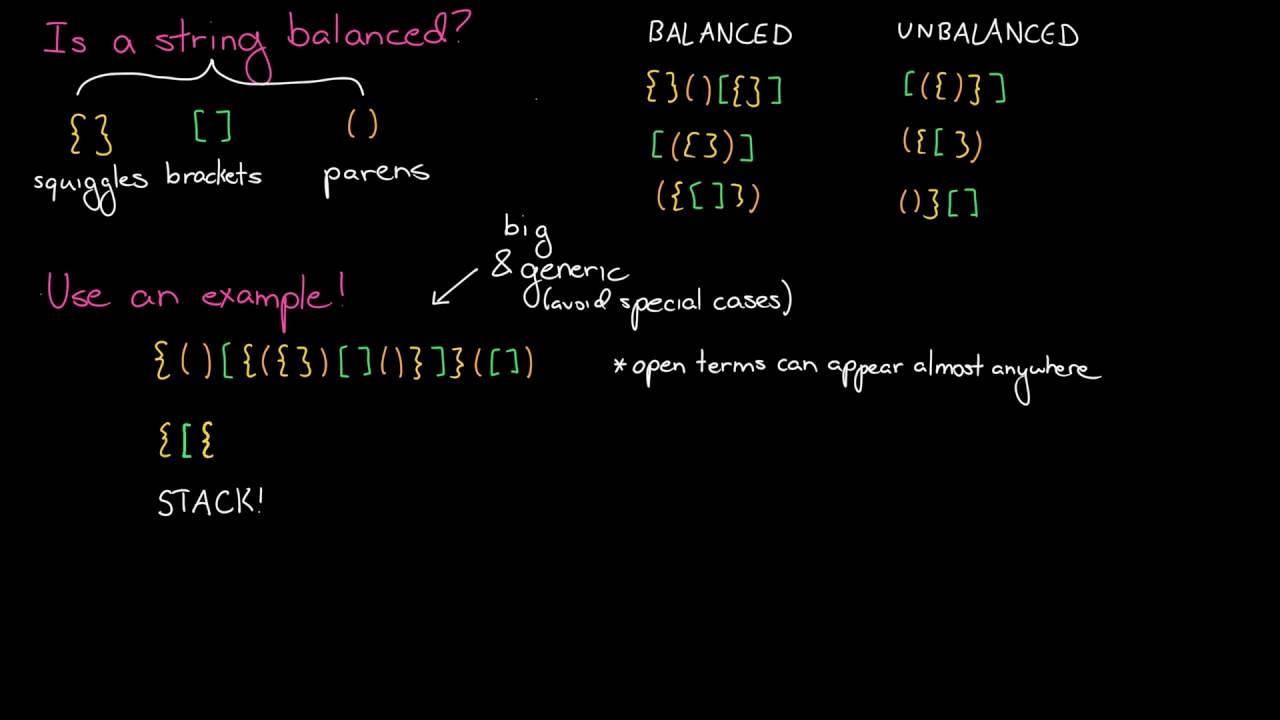 Is a string balanced?
{} [] ()
squiggles brackets parens
BALANCED
{}()[{}]
[({})]
({[]})
UNBALANCED
[({)}]
({[})
()}[]
big
& generic
(avoid special cases)
Use an example!
{()[{({})[]()}]}([])
*open terms can appear almost anywhere
{[{
STACK!